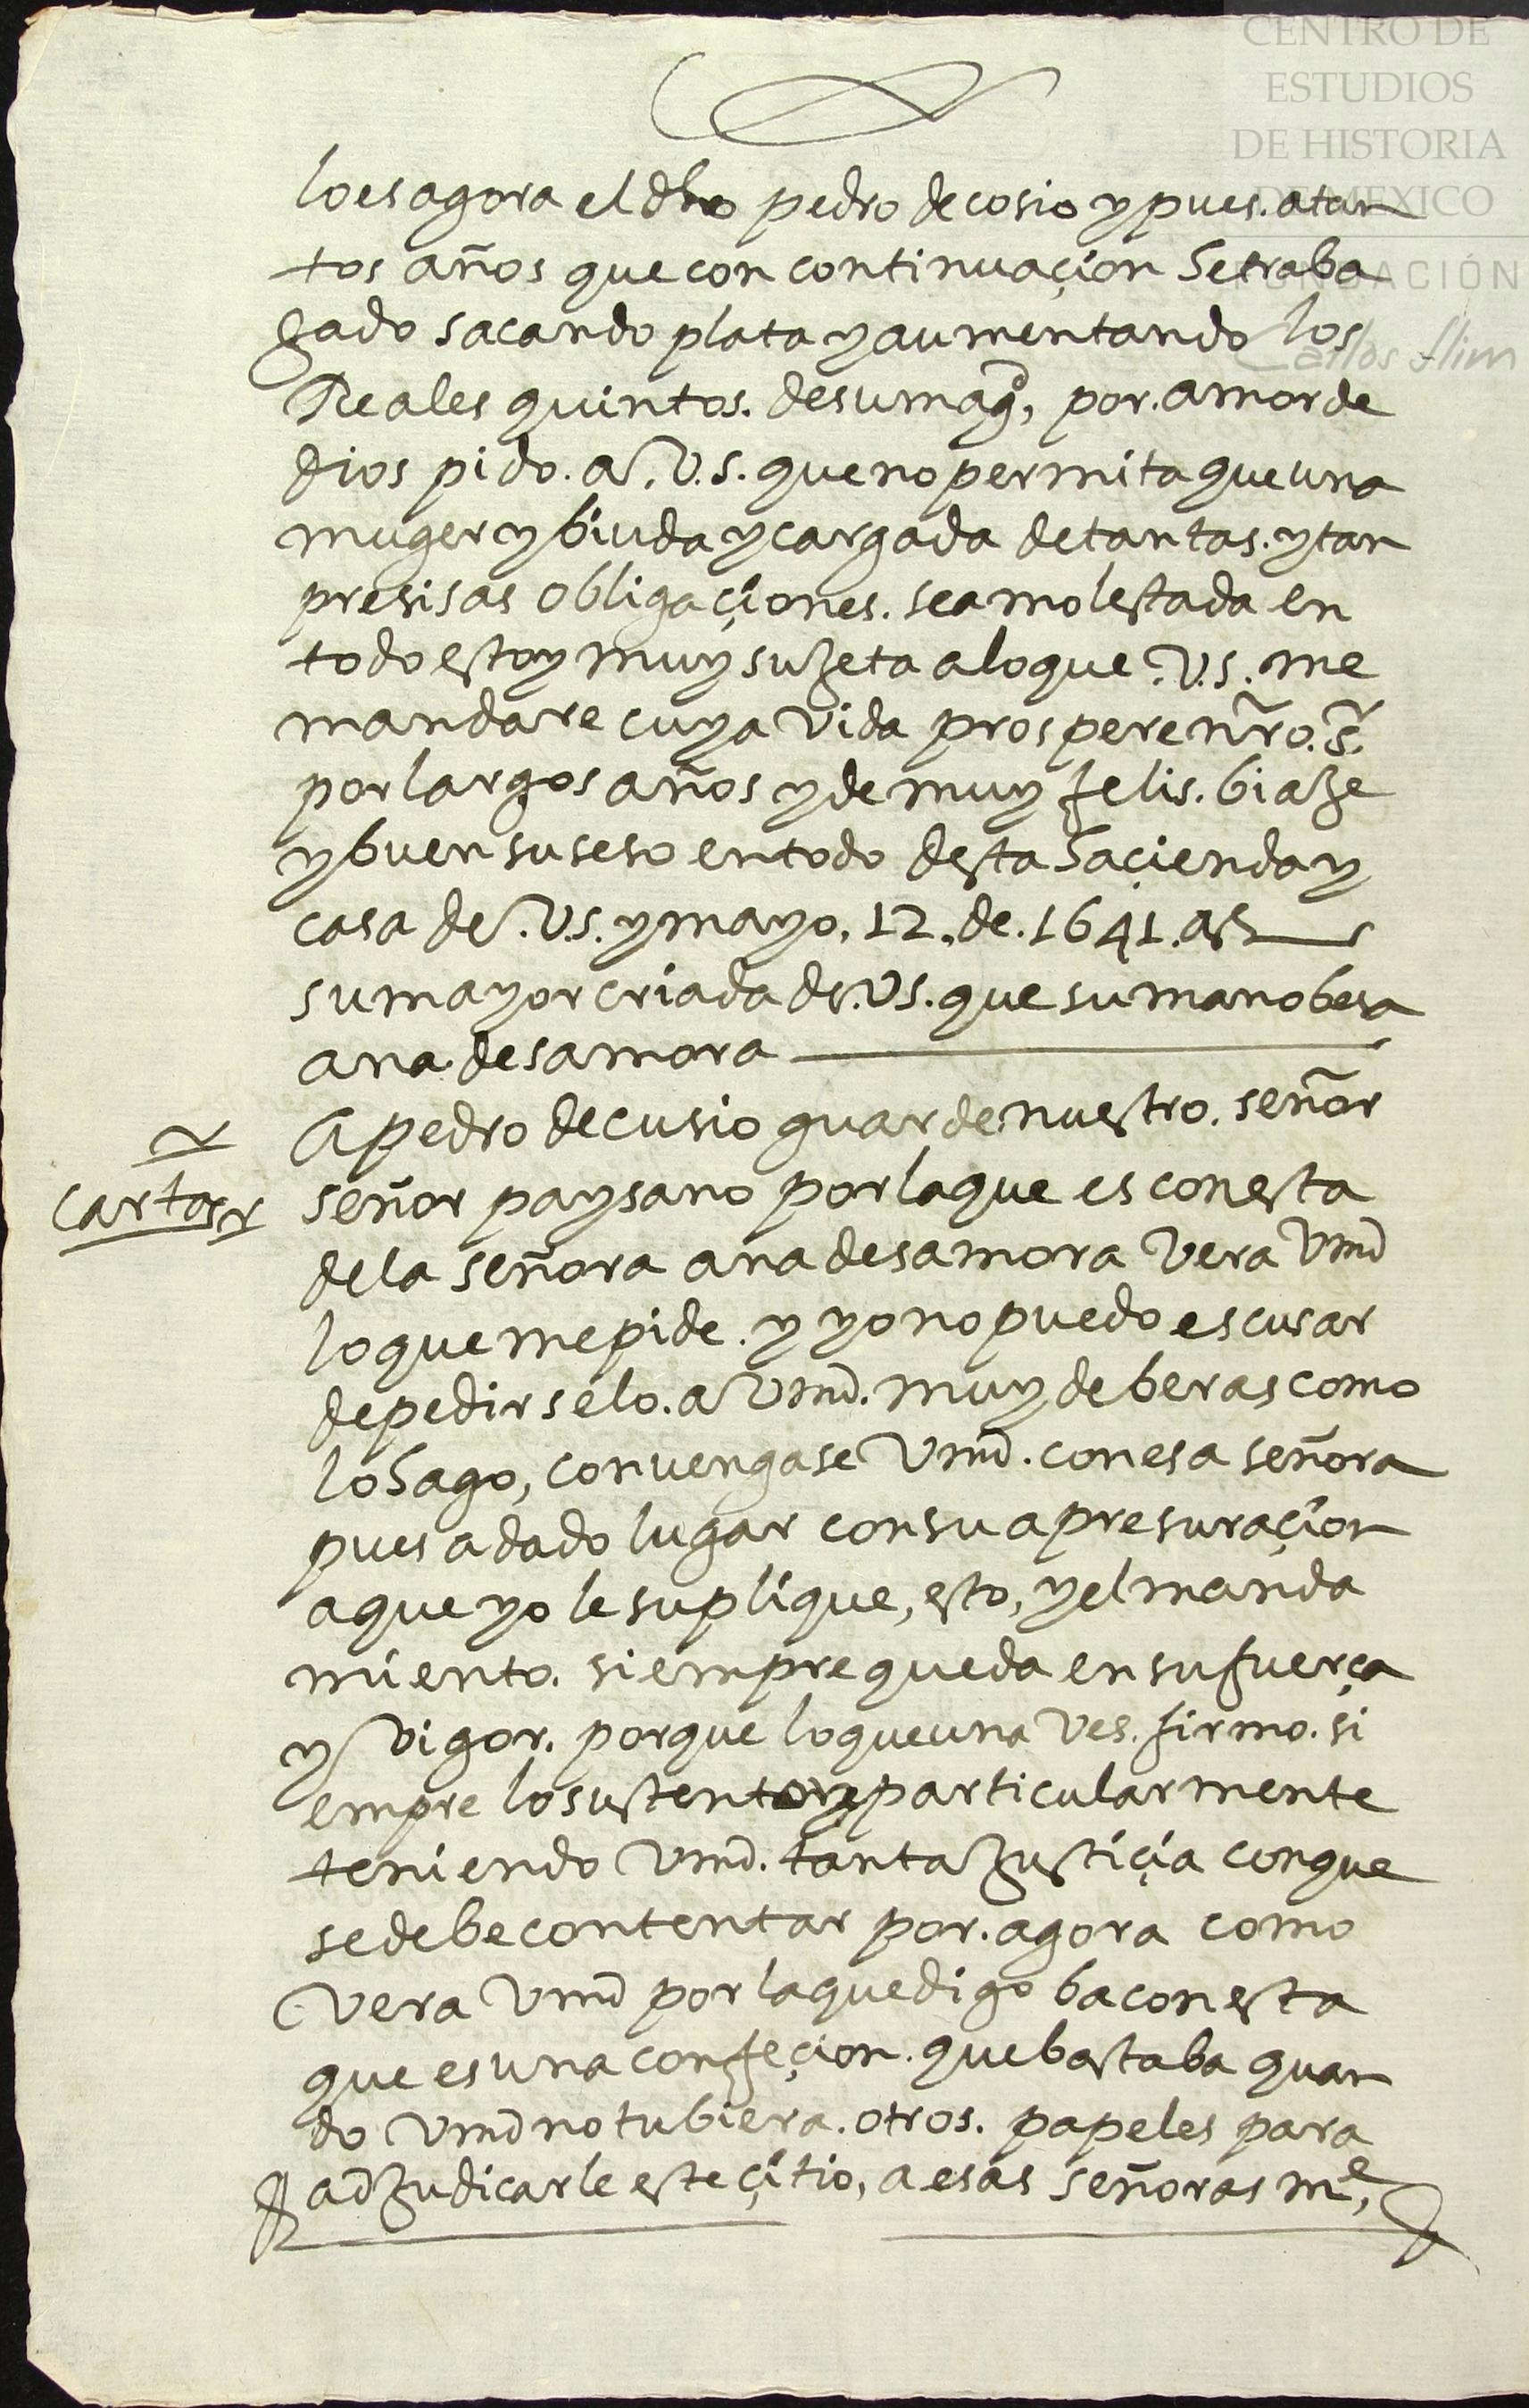 CENTRO DE
ESTUDIOS
DE HISTORIA
DE MEXICO
FUNDACIÓN
Carlos Slim
lo es agora el dho pedro de cosio y pues. a tan
tos años que con continuaçion se traba
jado sacando plata y aumentando los
Reales quintos. de su magd, por. amor de
dios pido. a. V.S. que no permita que una
muger y biuda y cargada de tantas. y tan
presisas obligaçiones. sea molestada en
todo estoy muy sujeta a lo que. V.S. me
mandare cuya vida prospere nro. Sr.
por largos años y de muy felis. biaje
y buen suseso en todo desta haçienda y
casa de. V.S. y mayo, 12, de. 1641. as
su mayor criada de. VS. que su mano besa
ana. de samora
A pedro de cusio guarde. nuestro. señor
carta
señor paysano por la que es con esta
de la señora ana de samora vera Vmd
lo que me pide. y yo no puedo escusar
de pedirselo. a Vmd. muy de beras como
lo hago, convengase Vmd. con esa señora
pues a dado lugar con su apresuraçion
a que yo le suplique, esto, y el manda
miento. siempre queda en su fuerça
y vigor. porque lo que una ves. firmo. si
empre lo sustento y particularmente
teniendo Vmd. tanta justiçia con que
se debe contentar por. agora como
vera Vmd por la que digo ba con esta
que es una confeçion. que bastaba quan
do Vmd no tubiera. otros. papeles para
adjudicarle este çitio, a esas señoras me,